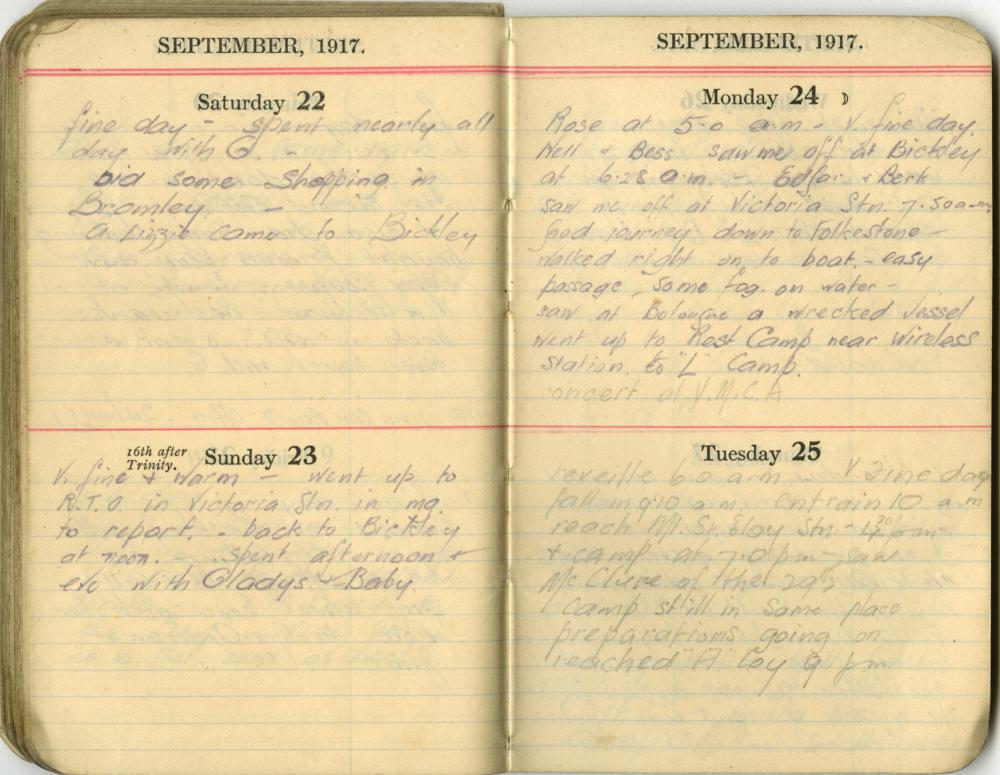 SEPTEMBER, 1917.
Saturday 22
fine day - spent nearly all
day with G. -
Did some Shopping in
Bromley. -
a Lizzie came to Bickley
16th after
Trinity. Sunday 23
V. fine & warm - went up to
R.T.O. in Victoria Stn. in mg.
to report. - back to Bickley
at noon. - spent afternoon &
eve with Gladys & Baby.
SEPTEMBER, 1917.
Monday 24
Rose at 5.0 a.m - V. fine day.
Nell & Bess saw me off at Bickley
at 6.28 a.m. - Edgar & Bert
saw me off at Victoria Stn. 7.50 a.m.
good journey down to Folkestone -
walked right on to boat. - easy
passage, some fog. on water -
saw at Bologne a wrecked vessel
went up to Rest Camp near wireless
station. to "L" Camp.
concert at Y.M.C.A
Tuesday 25
reveille 6.0 a.m - V. fine day
fall in 9.10 a.m. entrain 10 a.m
reach Mt. St. Eloy Stn - 4.30 pm
& camp at 7.0 pm - saw
McClure of the 29th
Camp still in same place
preparations going on.
reached "A" Coy 9 pm